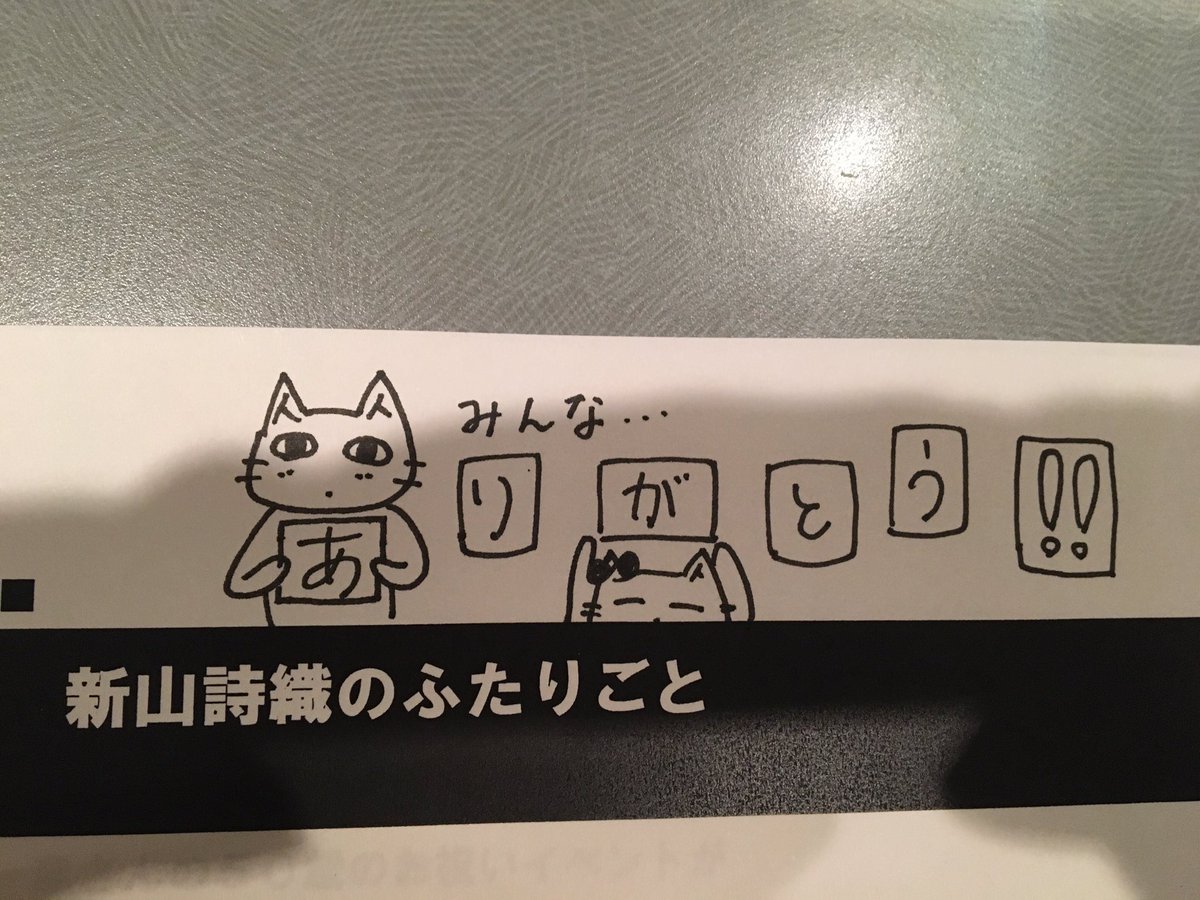 みんな…
ありがとう!!
新山詩織のふたりごと